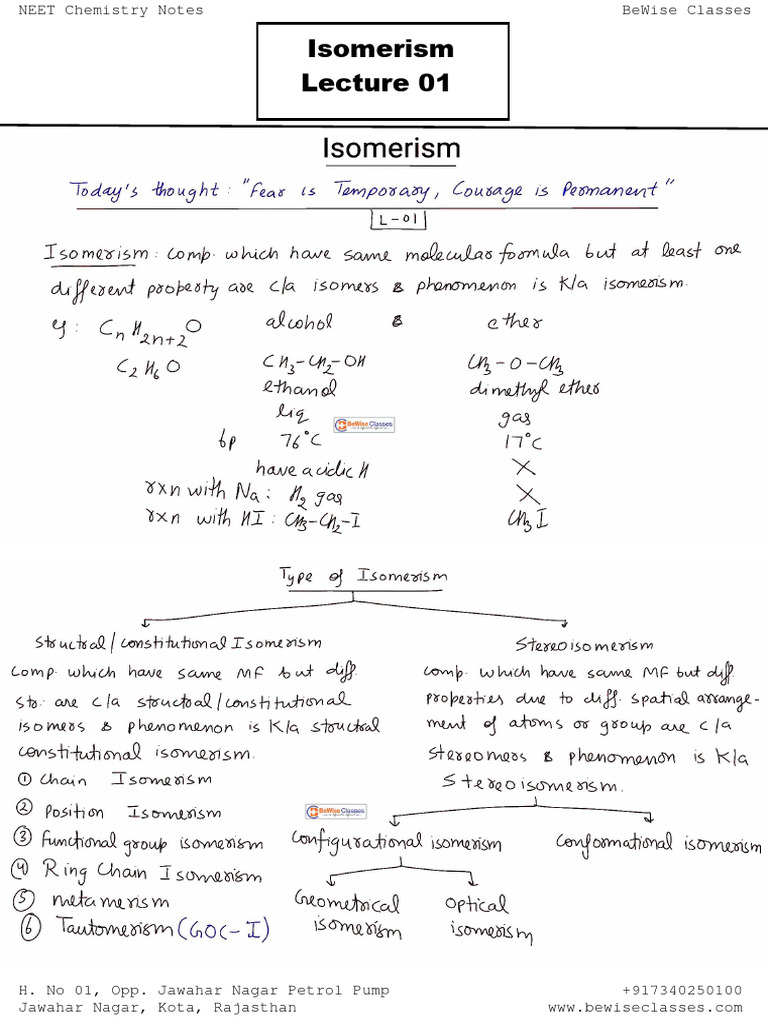 NEET Chemistry Notes BeWise Classes
Isomerism
Lecture 01
Isomerism
Today's thought: "Fear is Temporary, Courage is Permanent"
L-01
Isomerism: comp. which have same molecular formula but at least one
different property are c/a isomers & phenomenon is k/a isomerism.
eg: CnH2n+2O alcohol & ether
C2H6O CH3-CH2-OH CH3-O-CH3
ethanol dimethyl ether
liq gas
BeWise Classes
bp 76°C 17°C
have acidic H ×
rxn with Na: H2 gas ×
rxn with HI: CH3-CH2-I CH3I
Type of Isomerism
Structral/constitutional Isomerism Stereoisomerism
comp. which have same MF but diff. comp. which have same MF but diff.
str. are c/a structral/constitutional properties due to diff. spatial arrange-
isomers & phenomenon is k/a structral ment of atoms or group are c/a
constitutional isomerism. stereomers & phenomenon is k/a
① Chain Isomerism Stereoisomerism.
② Position Isomerism BeWise Classes
③ Functional group isomerism Configurational isomerism Conformational isomerism
④ Ring Chain Isomerism
⑤ metamerism Geometrical Optical
⑥ Tautomerism (GOC-I) isomerism isomerism
H. No 01, Opp. Jawahar Nagar Petrol Pump +917340250100
Jawahar Nagar, Kota, Rajasthan www.bewiseclasses.com